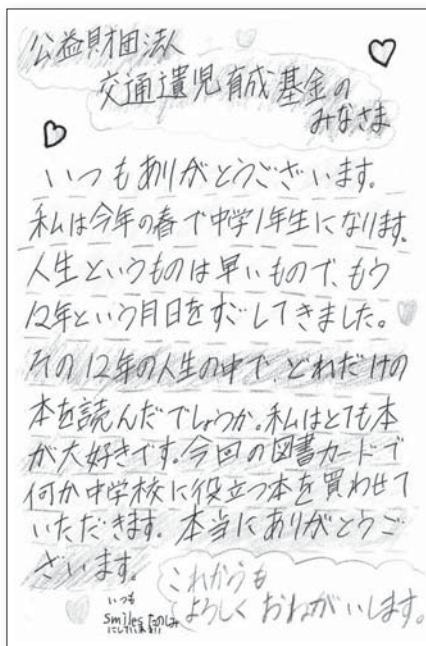 公益財団法人
交通遺児育成基金の
みなさま
いつもありがとうございます。
私は今年の春で中学1年生になります。
人生というものは早いもので、もう
12年という月日をすごしてきました。
その12年の人生の中で、どれだけの
本を読んだでしょうか。私はとても本
が大好きです。今回の図書カードで
何か中学校に役立つ本を買わせて
いただきます。本当にありがとうご
ざいます。
これからも
よろしくおねがいします。
いつも
Smilesたのしみ
にしています!!